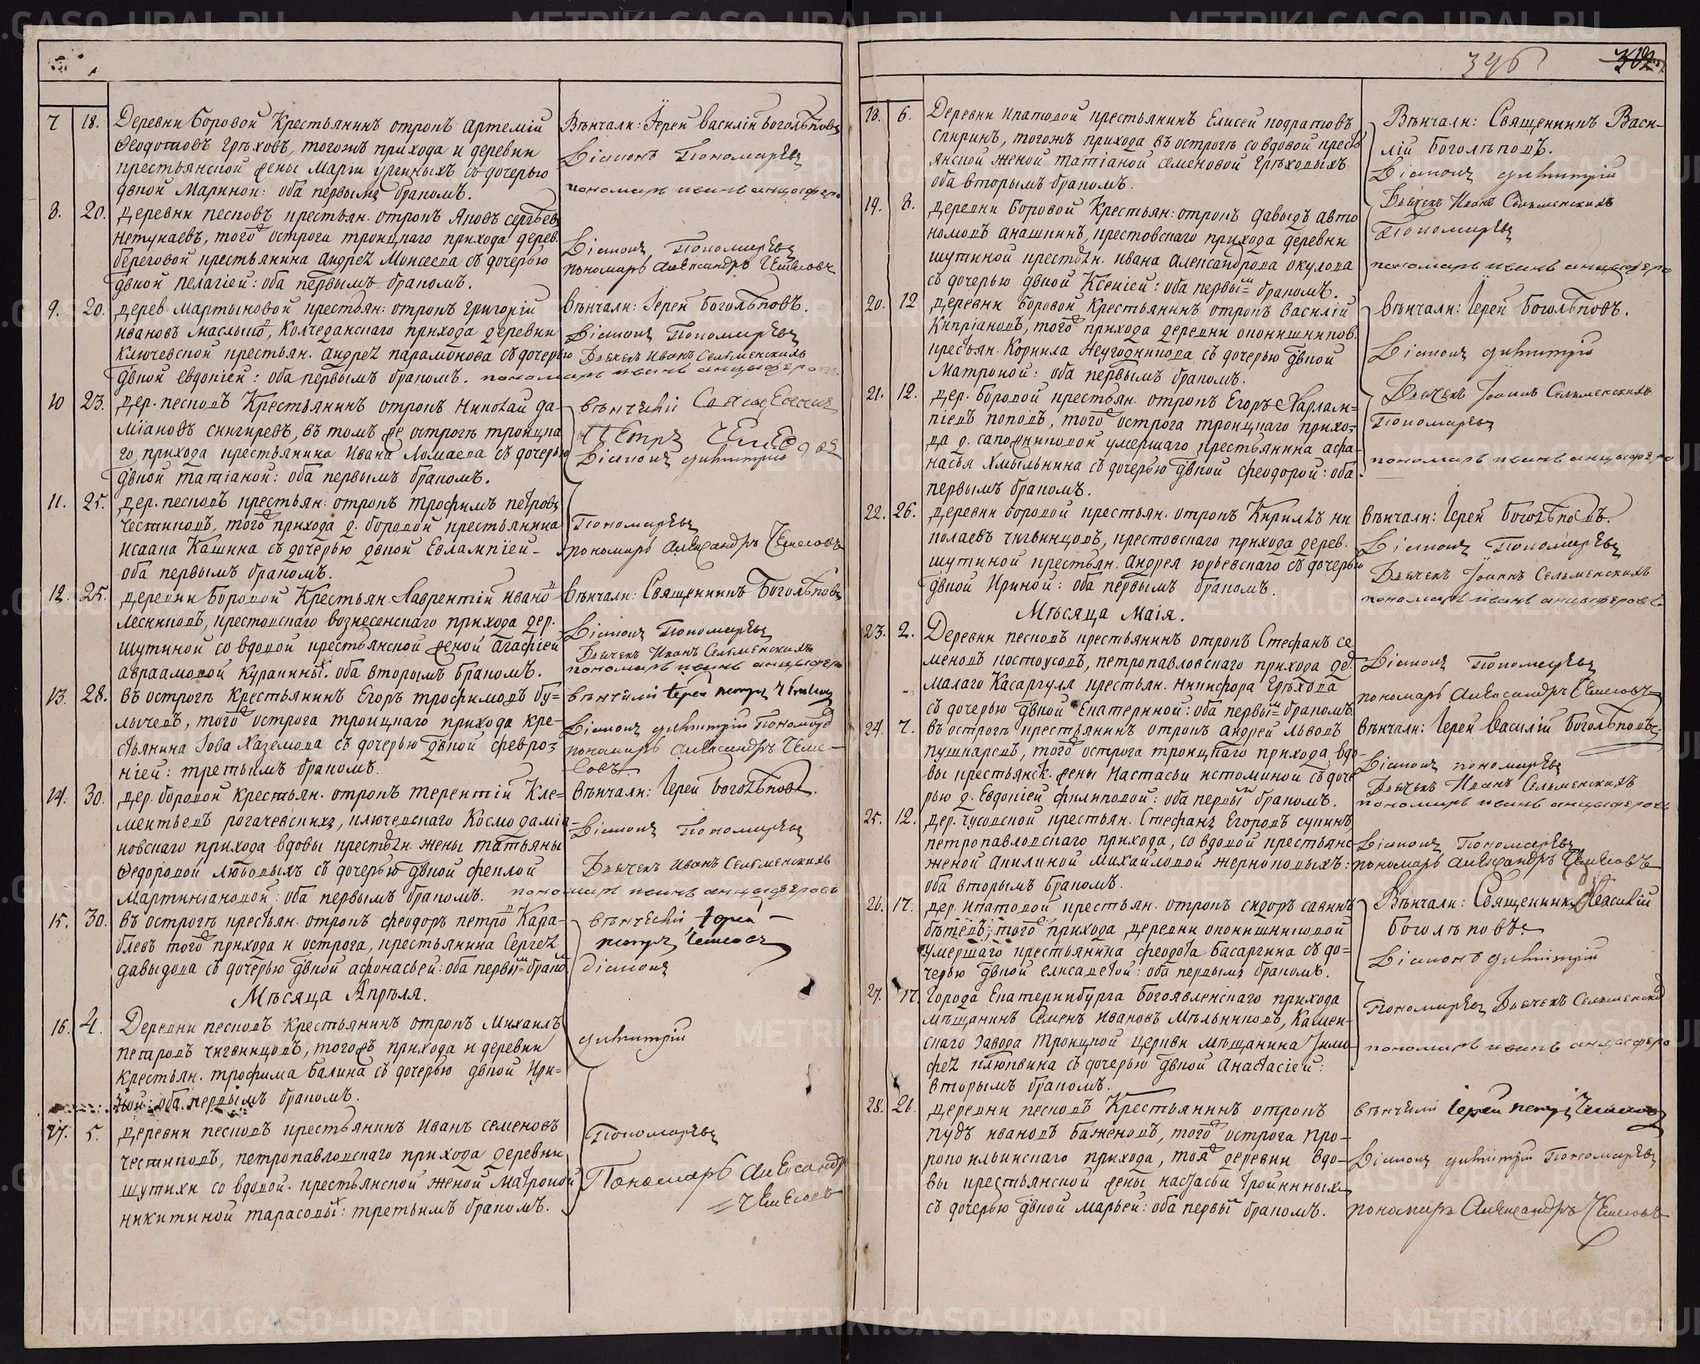 396
7 18. Деревни Боровой Крестьянинъ отрокъ Артемій
Феодотовъ Грѣховъ, тогожъ прихода и деревни
крестьянской жены Маріи съ дочерью
двкой Мариной: оба первымъ бракомъ.
Вѣнчали: Іерей Василій Боголѣповъ
Діаконъ Пономаревъ
пономарь иванъ анцыферо
8. 20. деревни песковъ крестьян. отрокъ Яковъ
того острога троицкаго прихода дерев.
береговой крестьянина Андрея Моисеева съ дочерью
двкой Пелагіей: оба первымъ бракомъ.
Діаконъ Пономаревъ
пономарь Александръ Чемесовъ
9. 20. дерев. Мартыновой крестьян: отрокъ григорій
ивановъ Колчеданскаго прихода деревни
Ключевской крестьян. андрея парамонова съ дочерью
двкой евдокіей: оба первымъ бракомъ.
Вѣнчали: Іерей Боголѣповъ.
Діаконъ Пономаревъ
Дьячекъ Иванъ Сельменскихъ
пономарь иванъ анцыферо
10 23. дер. песковъ Крестьянинъ отрокъ Николай да-
міановъ снигиревъ, въ томъ же острогѣ троицка
го, прихода крестьянина Ивана Ломаева съ дочерью
двкой татіаной: оба первымъ бракомъ.
Петръ
Діаконъ димитрій
11. 25. дер. песковъ крестьян: отрокъ трофимъ петровъ
Честиковъ, того прихода д. боровой крестьянина
исаака Кашина съ дочерью двкой Евлампіей-
оба первымъ бракомъ.
Пономаревъ
пономарь Александръ Чемесовъ
12. 25. деревни Боровой Крестьян. Лаврентій Иванов
крестовскаго вознесенскаго прихода дер.
шутиной со вдовой крестьянской женой Агафіей
авраамовой: оба вторымъ бракомъ.
Вѣнчали: Священникъ Боголѣповъ
Діаконъ Пономаревъ
Дьячекъ Иванъ Сельменскихъ
пономарь иванъ анцыферо
13. 28. въ острогѣ Крестьянинъ Егоръ трофимовъ бу-
лычевъ, того острога троицкаго прихода кре-
стьянина Іова съ дочерью двкой февро-
ніей: третьимъ бракомъ.
вѣнчалъ іерей петръ
Діаконъ димитрій Пономарев
пономарь Александръ Чеме-
совъ
14. 30. дер. боровой крестьян. отрокъ терентій Кле-
ментьевъ рогачевскихъ, ключевскаго Космо даміа-
новскаго прихода вдовы крестьян. жены татьяны
Федоровой съ дочерью двкой феклой
мартиніановой: оба первымъ бракомъ.
Вѣнчали: Іерей Боголѣповъ.
Діаконъ Пономаревъ
Дьячекъ Иванъ Сельменскихъ
пономарь иванъ анцыферовъ
15. 30. въ острогѣ крестьян. отрокъ феодоръ петров Кара-
блевъ того прихода и острога, крестьянина Сергея
давыдова съ дочерью двкой афонасьей: оба первым браком
петръ Чемесовъ
діаконъ
Мѣсяца Апрѣля.
16. 4. Деревни песковъ Крестьянинъ отрокъ Михаилъ
чигвинцовъ, тогожъ прихода и деревни
крестьян. трофима балина съ дочерью двкой Ири-
ной: оба первымъ бракомъ.
димитрій
17. 5. деревни песковъ крестьянинъ иванъ семеновъ
честиковъ, петропавловскаго прихода деревни
шутихи со вдовой крестьянской женой Матроной
никитиной тарасовых: третьимъ бракомъ.
Пономаревъ
Пономарь Александръ
Чемесовъ
18. 6. Деревни ипатовой крестьянинъ Елисей
спиринъ, тогожъ прихода въ острогѣ со вдовой кресть
янской женой татіаной семеновой Грѣховыхъ
оба вторымъ бракомъ.
Вѣнчали: Священникъ Васи-
лій Боголѣповъ.
Діаконъ димитрій
19. 8. деревни Боровой Крестьян: отрокъ давыдъ авто
номовъ анашкинъ, крестовскаго прихода деревни
шутиной крестьян. ивана александрова окулова
съ дочерью двкой Ксеніей: оба первым бракомъ.
Дьячекъ Иванъ Сельменскихъ
Пономаревъ
пономарь иванъ анцыферо
20. 12 деревни боровой Крестьянинъ отрокъ Василій
Кипріановъ, того прихода деревни
крестьян. Корнила Неугодникова съ дочерью двкой
матроной: оба первымъ бракомъ.
Вѣнчали: Іерей Боголѣповъ.
Діаконъ димитрій
21. 12. дер. боровой крестьян. отрокъ Егоръ Харлам-
піевъ поповъ, того острога троицкаго прихо-
да д. сапожниковой умершаго крестьянина афа-
насья Хмыльнина съ дочерью двкой феодорой: оба
первымъ бракомъ.
Дьячекъ Іоаннъ Сельменскихъ
Пономаревъ
пономарь иванъ анцыферо
22. 26. деревни боровой крестьян. отрокъ Кирилъ ни
колаевъ чигвинцовъ, крестовскаго прихода дерев.
шутиной крестьян. Андрея юрьевскаго съ дочерью
двкой Ириной: оба первымъ бракомъ.
Вѣнчали: Іерей Боголѣповъ.
Діаконъ Пономаревъ
Дьячекъ Іоаннъ Сельменскихъ
пономарь иванъ анцыферовъ
Мѣсяца Маія.
23. 2. Деревни песковъ крестьянинъ отрокъ Стефанъ се
меновъ костоусовъ, петропавловскаго прихода де
малаго Касаргуля крестьян. Никифора Грѣхова
съ дочерью двкой Екатериной: оба первым бракомъ
Діаконъ Пономаревъ
пономарь Александръ Чемесовъ
24. 7. въ острогѣ крестьянинъ отрокъ андрей Львовъ
пушкаревъ, того острога троицкаго прихода вдо
вы крестьянск. жены Настасьи истоминой съ доче
рью д. Евдокіей филиповой: оба первым бракомъ.
Вѣнчали: Іерей Василій Боголѣповъ
Діаконъ пономаревъ
Дьячекъ Иванъ Сельменскихъ
пономарь иванъ анцыферовъ
25. 12. дер. Чусовской крестьян. Стефанъ Егоровъ сукинъ
петропавловскаго прихода, со вдовой крестьянс
женой Акилиной михайловой жерноковыхъ:
оба вторымъ бракомъ.
Діаконъ Пономаревъ
пономарь Александръ Чемесовъ
26. 17. дер. Ипатовой крестьян. отрокъ сидоръ савинъ
того прихода деревни
умершаго крестьянина феодота Басаргина съ до-
черью двкой елисаветой: оба первымъ бракомъ.
Вѣнчали: Священникъ Василій
Боголѣповъ
Діаконъ димитрій
27. 17. города Екатеринбурга Богоявленскаго прихода
мѣщанинъ Семенъ Ивановъ Мѣльниковъ, Камен-
скаго завода Троицкой церкви мѣщанина Тимо
фея плюхина съ дочерью двкой Анастасіей:
вторымъ бракомъ.
Пономаревъ Дьячекъ Сельменски
пономарь иванъ анцыферо
28. 21. деревни песковъ Крестьянинъ отрокъ
Пудъ ивановъ баженовъ, того острога про-
роко ильинскаго прихода, той деревни вдо-
вы крестьянской жены настасьи
съ дочерью двкой марьей: оба первым бракомъ.
вѣнчали іерей петръ Чемесовъ
Діаконъ димитрій Пономаревъ
пономарь Александръ Чемесовъ
METRIKI.GASO-URAL.RU